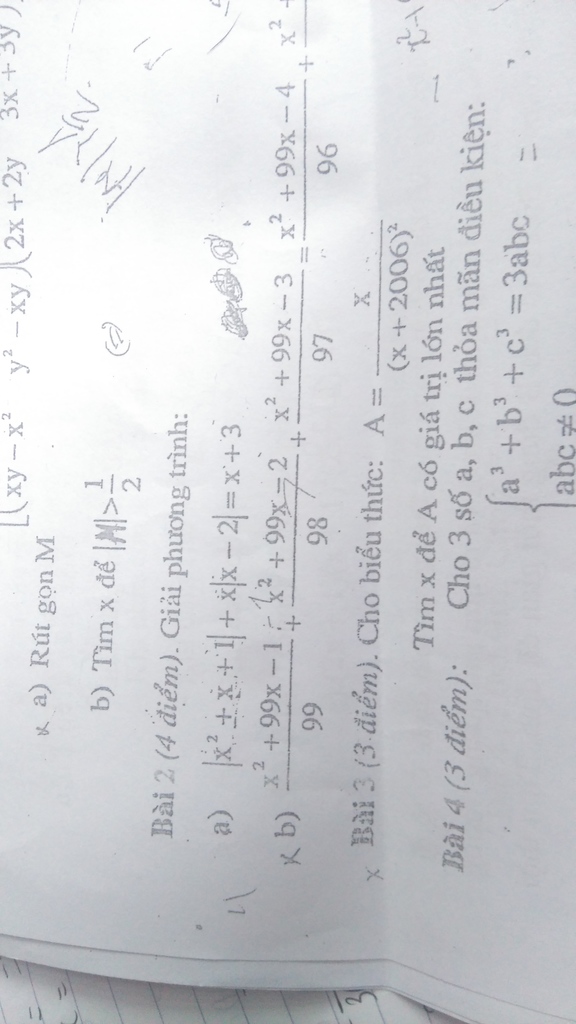 [(xy - x² y² - xy)(2x + 2y 3x + 3y)
a) Rút gọn M
b) Tìm x để |M| > 1/2
Bài 2 (4 điểm). Giải phương trình:
a) |x² + x + 1| + x|x - 2| = x + 3
b) (x² + 99x - 1)/99 + (x² + 99x - 2)/98 + (x² + 99x - 3)/97 = (x² + 99x - 4)/96 + x² +
Bài 3 (3 điểm). Cho biểu thức: A = x/(x + 2006)²
Tìm x để A có giá trị lớn nhất
Bài 4 (3 điểm): Cho 3 số a, b, c thỏa mãn điều kiện:
{a³ + b³ + c³ = 3abc
abc ≠ 0